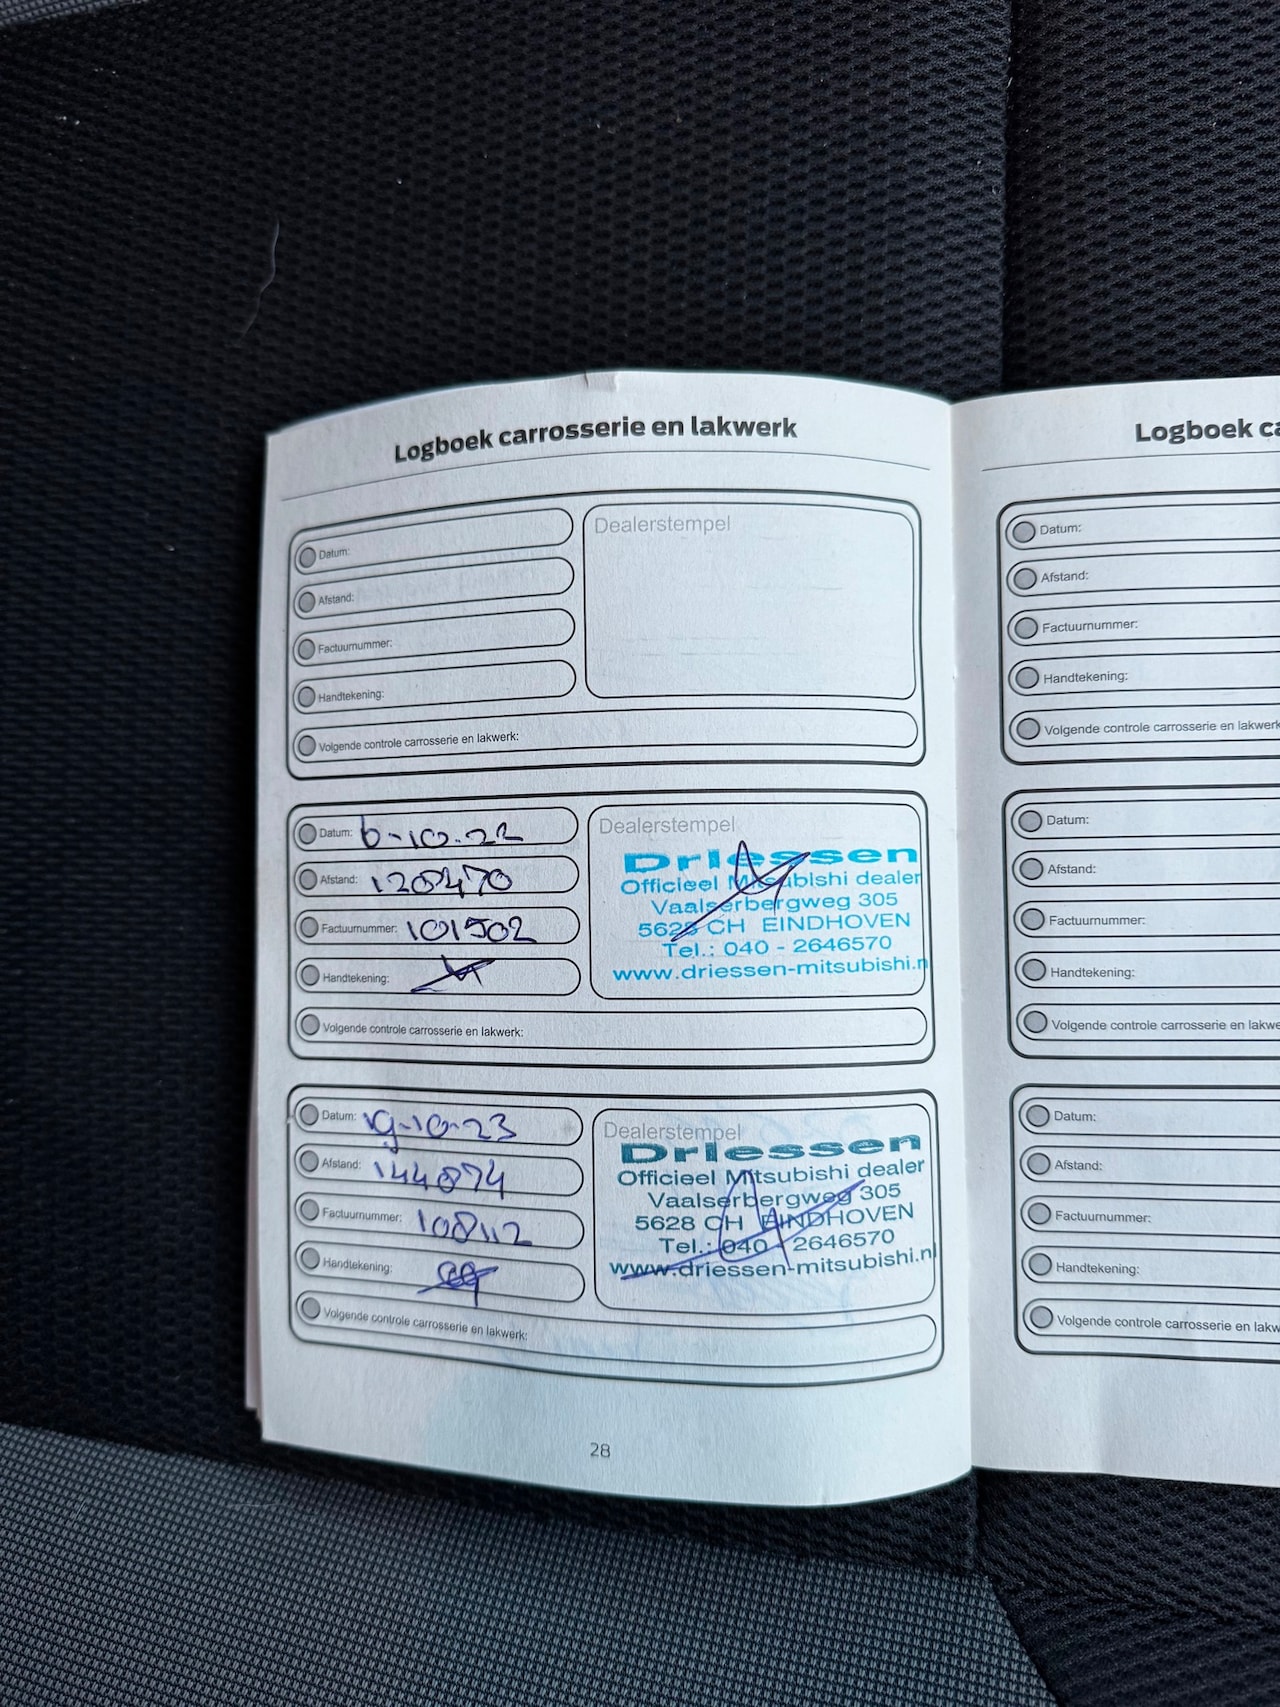 Logboek carrosserie en lakwerk
Datum:
Afstand:
Factuurnummer:
Handtekening:
Volgende controle carrosserie en lakwerk:
Dealerstempel
Datum: 6-10-22
Afstand: 120470
Factuurnummer: 101502
Handtekening:
Volgende controle carrosserie en lakwerk:
Dealerstempel
Driessen
Officieel Mitsubishi dealer
Vaalserbergweg 305
5628 CH EINDHOVEN
Tel.: 040 - 2646570
www.driessen-mitsubishi.n
Datum: 19-10-23
Afstand: 144874
Factuurnummer: 108112
Handtekening:
Volgende controle carrosserie en lakwerk:
Dealerstempel
Driessen
Officieel Mitsubishi dealer
Vaalserbergweg 305
5628 CH EINDHOVEN
Tel.: 040 - 2646570
www.driessen-mitsubishi.nl
28
Logboek ca
Datum:
Afstand:
Factuurnummer:
Handtekening:
Volgende controle carrosserie en lakwerk
Datum:
Afstand:
Factuurnummer:
Handtekening:
Volgende controle carrosserie en lakwe
Datum:
Afstand:
Factuurnummer:
Handtekening:
Volgende controle carrosserie en lakw